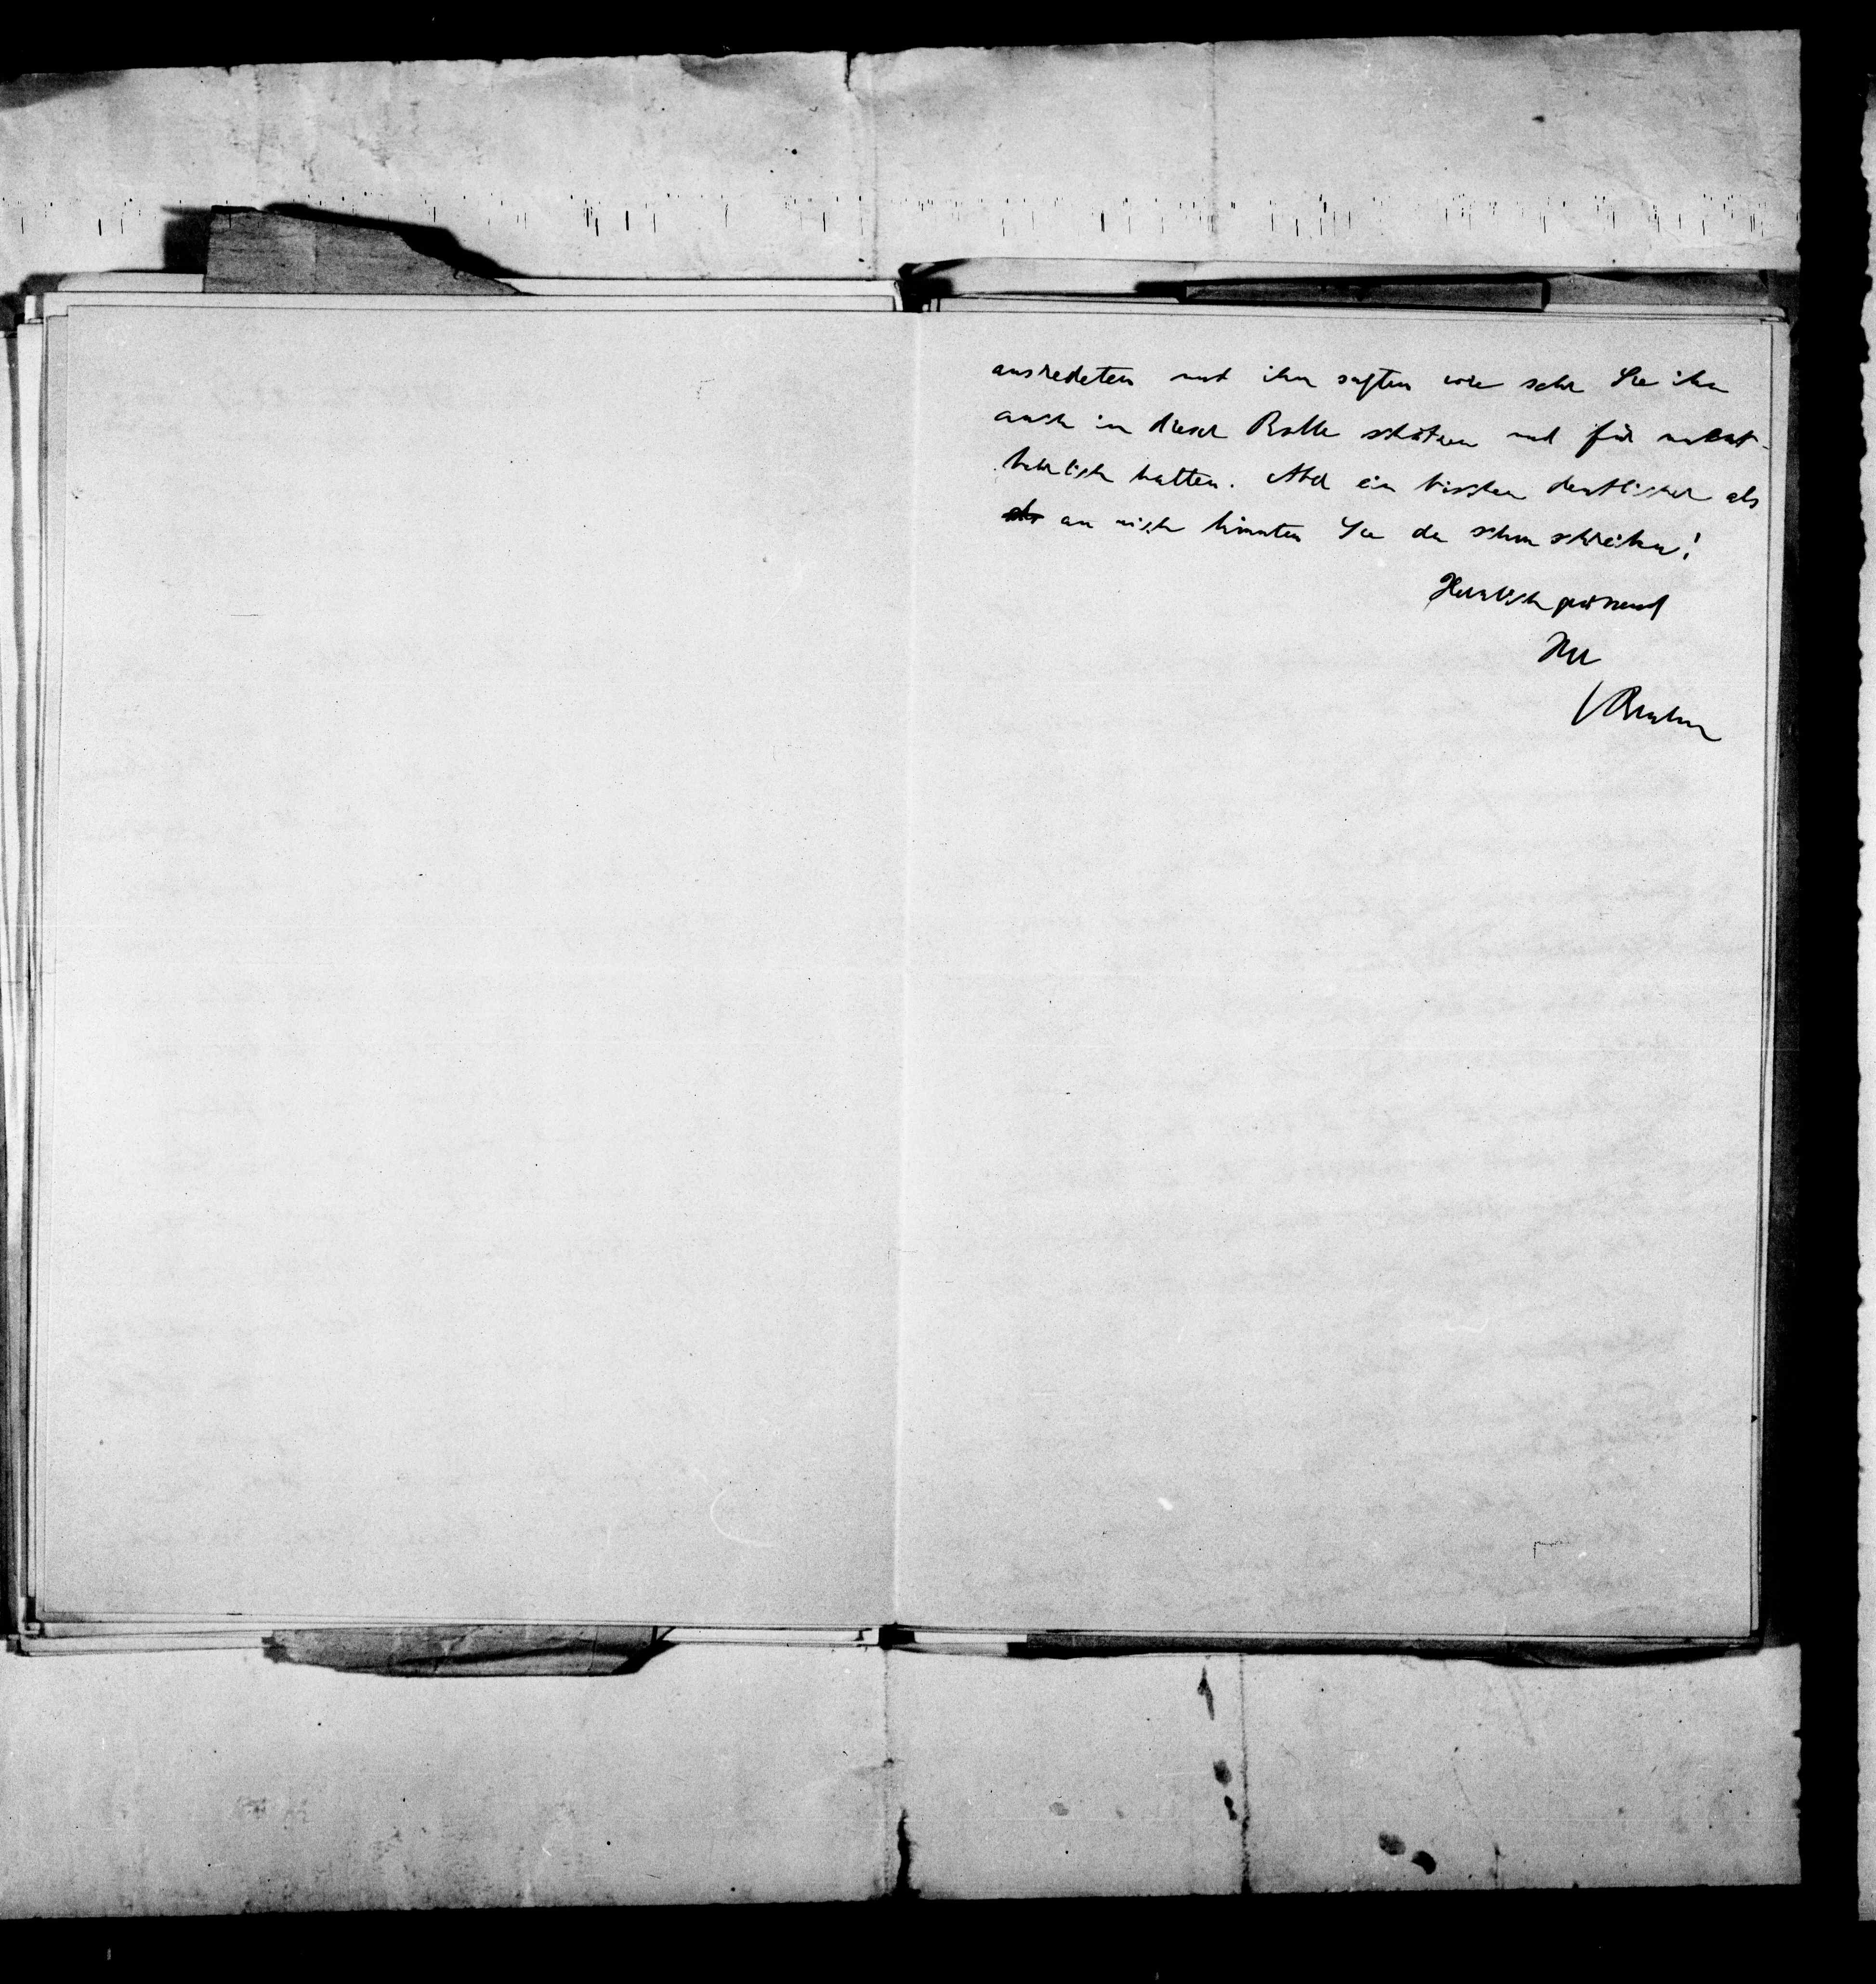 ausredeten und ihm sagten wie sehr Sie ihn
auch in dieser Rolle schätzen und für unent-
behrlich hatten. Aber ein bisschen deutlicher als
an mich könnten Sie da schon schreiben!
Herzlich grüssend
Ihr
Brahm